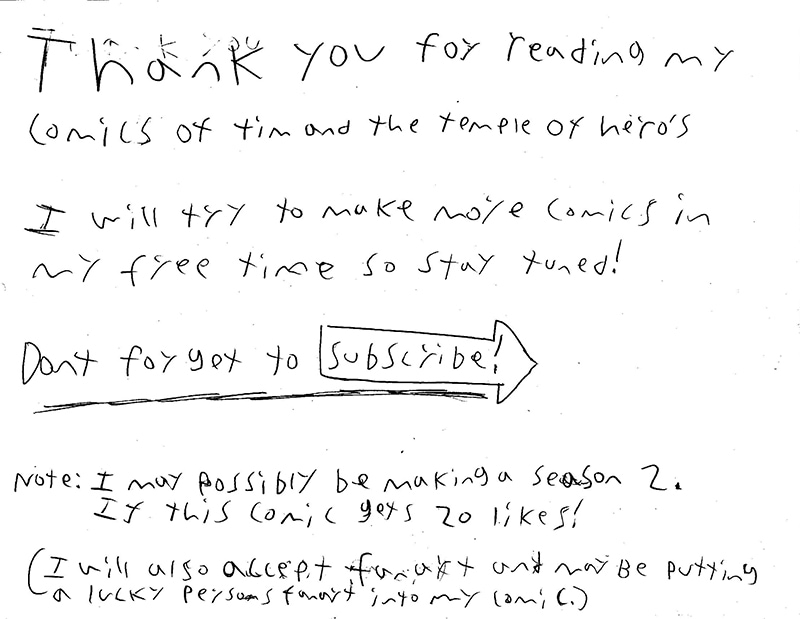 Thank you for reading my
comics of tim and the temple of hero's
I will try to make more comics in
my free time so stay tuned!
Dont forget to subscribe!
Note: I may possibly be making a season 2.
If this comic gets 20 likes!
(I will also accept fanart and may be putting
a lucky persons fanart into my comic.)